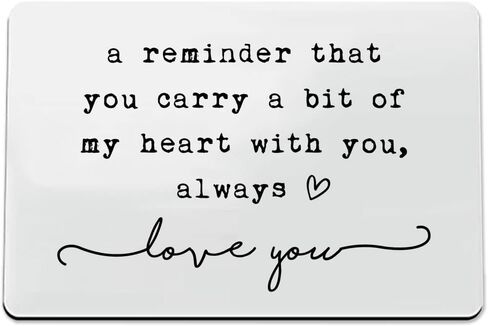 a reminder that
you carry a bit of
my heart with you,
always ♡
love you